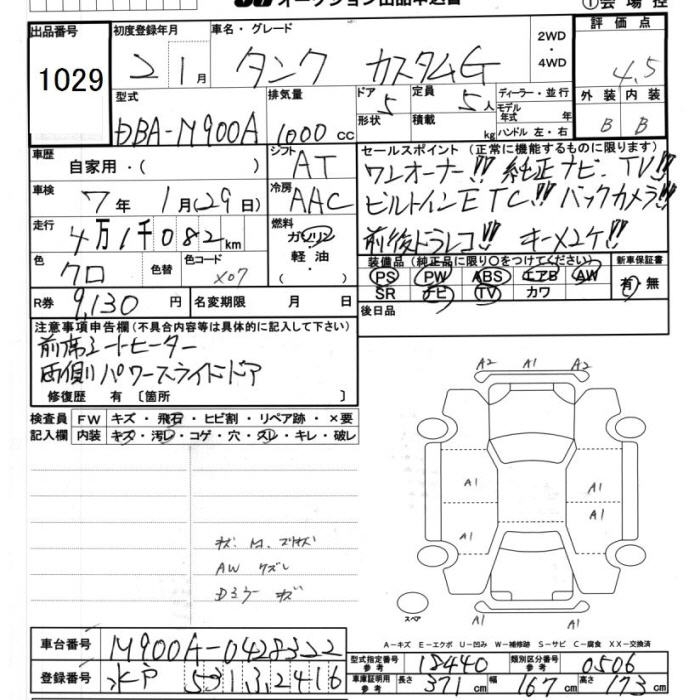 オークション出品申込書
①会場控
出品番号 1029
初度登録年月 2 1月
車名・グレード タンク カスタムG
2WD ・ 4WD
評価点 4.5
外装 B 内装 B
型式 DBA-M900A
排気量 1000 cc
ドア 5 形状
定員 5人 積載 kg
ディーラー・並行
モデル年式 年
ハンドル 左・右
車歴 自家用・( )
シフト AT
セールスポイント (正常に機能するものに限ります)
車検 7年 1月(29日)
冷房 AAC
ワンオーナー!! 純正ナビ、TV!!
ビルトインETC!! バックカメラ!!
前後ドラレコ!! キー×2ケ!!
走行 4万1千082km
燃料 ガソリン 軽油 ・
色 クロ 色替
色コード X07
装備品 (純正品に限り○をつけてください)
PS PW ABS エアB AW
SR ナビ TV カワ
新車保証書 有・無
R券 9,130 円
名変期限 月 日
後日品
注意事項申告欄(不具合内容等は具体的に記入して下さい)
前席シートヒーター
両側パワースライドドア
修復歴 有〔箇所 〕
検査員記入欄
FW キズ・飛石・ヒビ割・リペア跡・×要
内装 キズ・汚レ・コゲ・穴・スレ・キレ・破レ
AW
キズ
A2 A1 A2
A1 A1
A1 A1
A1
A1
スペア
A-キズ E-エクボ U-凹み W-補修跡 S-サビ C-腐食 XX-交換済
車台番号 M900A-0428322
登録番号 水戸 531 32416
型式指定番号 参考 18440
類別区分番号 参考 0506
車庫証明用 参考 長さ 371cm 幅 167cm 高さ 173cm